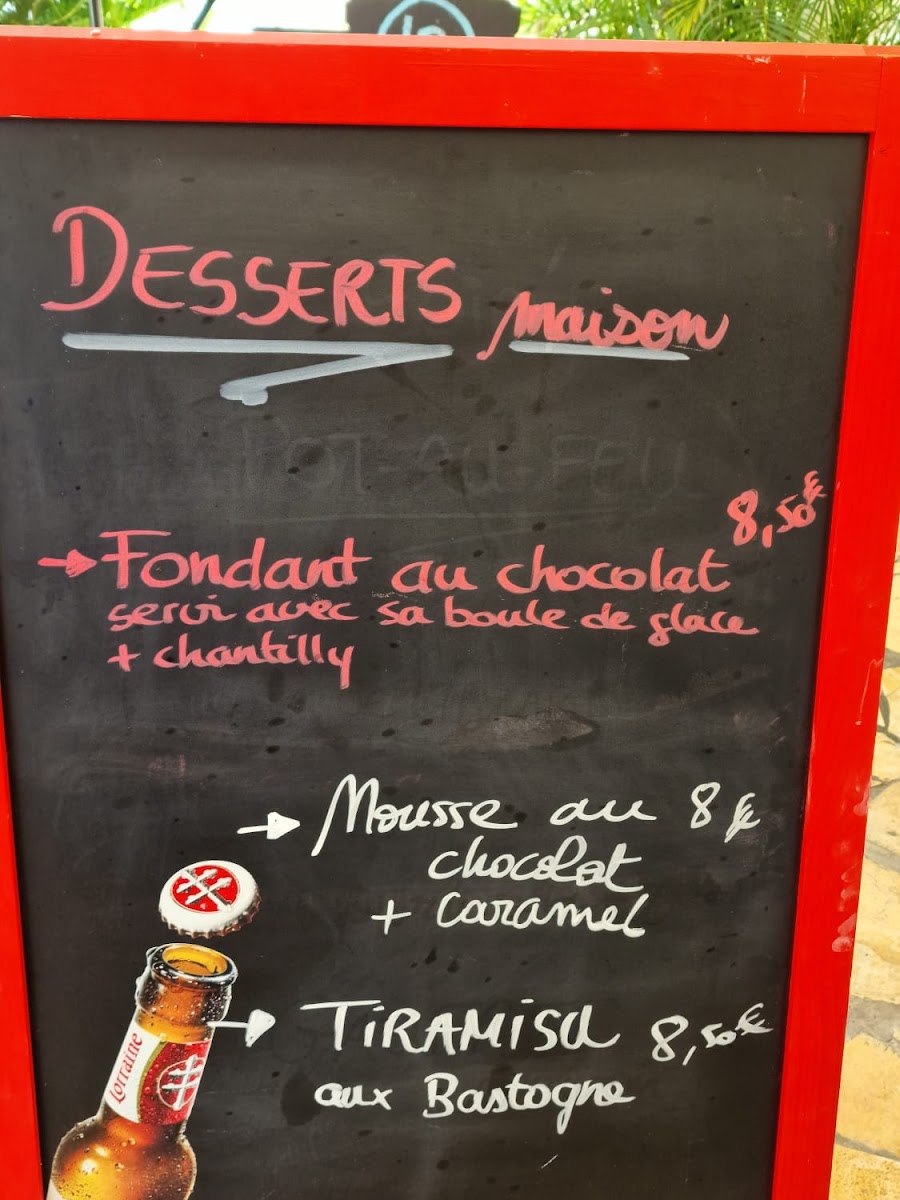 DESSERTS maison
POT-AU-FEU
8,50€
→ Fondant au chocolat
servi avec sa boule de glace
+ chantilly
→ Mousse au 8€
chocolat
+ caramel
→ TIRAMISU 8,50€
aux Bastogne
Lorraine